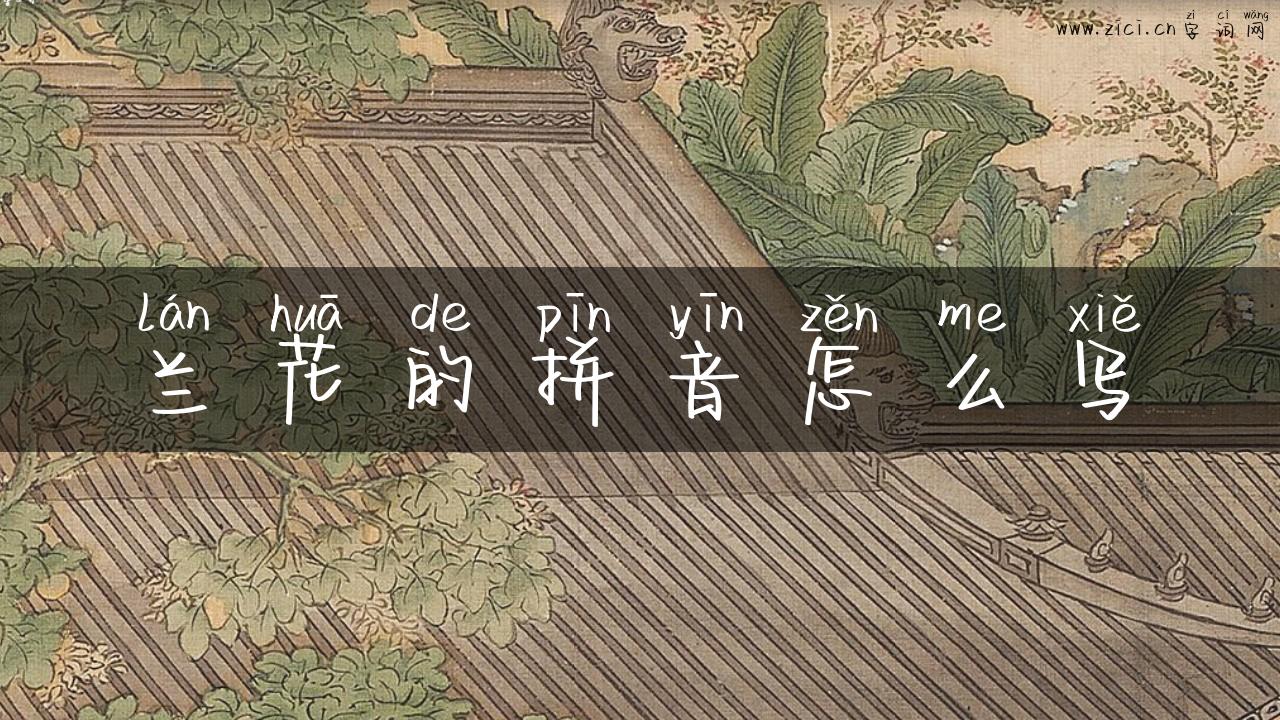 zì cí wǎng
www.zici.cn 字词网
lán huā de pīn yīn zěn me xiě
兰花的拼音怎么写